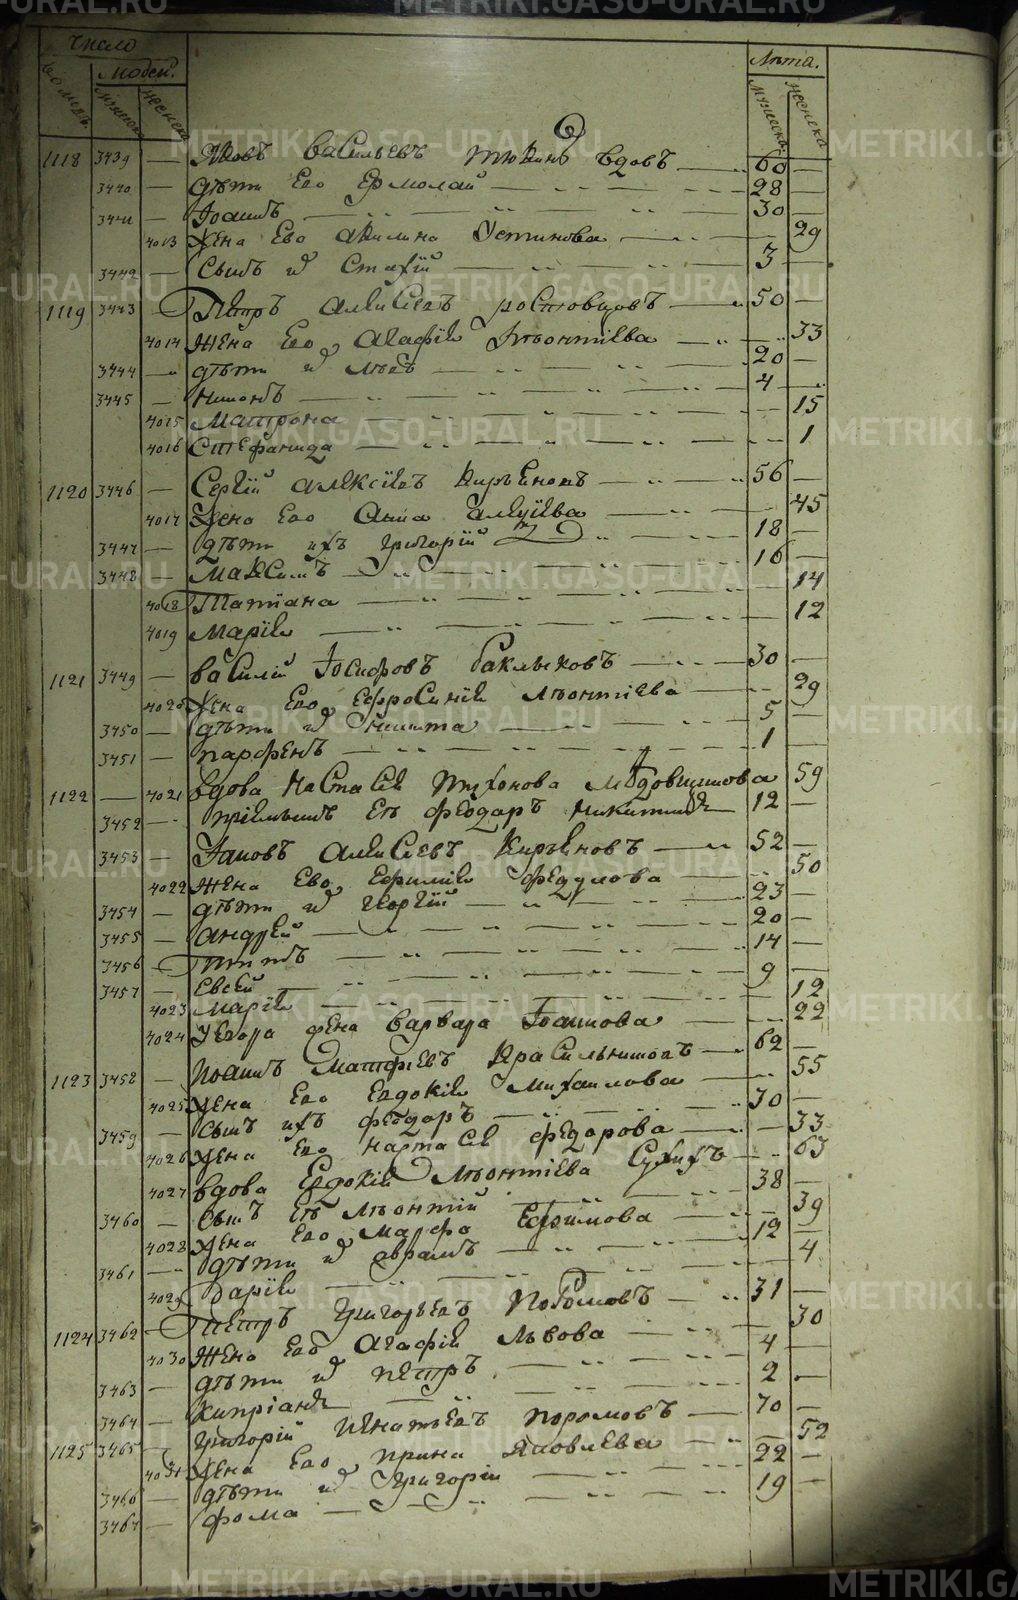 Число
Людей.
Лѣта.
мужеска
женска
мужеска
женска
1118 3439 — Яковъ Васильевъ вдовъ — 60 —
3440 — дѣти Ево Ермолай — 28 —
3441 — Іоаннъ — 30 —
4013 Жена Ево Акилина Устинова — 29
3442 — Сынъ их — 3 —
1119 3443 Петръ Алексѣевъ Ростовцовъ — 50 —
4014 Жена Ево Агафія Леонтіева — 33
3444 — дѣти их — 20 —
3445 — — 4 —
4015 Матрона — 15
4016 Стефанида — 1
1120 3446 — Сергій Алексѣевъ Кирьяновъ — 56 —
4017 Жена Ево Анна — 45
3447 — дѣти ихъ Григорій — 18 —
3448 — Максимъ — 16 —
4018 Татіана — 14
4019 Марія — 12
1121 3449 — Василій Іосифовъ Баклыковъ — 30 —
4020 Жена Ево Ефросинія Леонтіева — 29
3450 — дѣти их Никита — 5 —
3451 — Парфенъ — 1 —
1122 — 4021 вдова Настасія Тихонова — 59
3452 — Ея Феодаръ — 12 —
3453 — Іаковъ Алексѣевъ Кирьяновъ — 52 —
4022 Жена Ево Ефимія Федулова — 50
3454 — дѣти их Георгій — 23 —
3455 — Андрей — 20 —
3456 — Титъ — 14 —
3457 — Евсей — 9 —
4023 Марія — 12
4024 Жена Варвара Іоаннова — 22
1123 3458 — Іоаннъ Матфѣевъ Красильниковъ — 62 —
4025 Жена Ево Евдокія Михаилова — 55
3459 — Сынъ ихъ Феодаръ — 30 —
4026 Жена Ево Настасія Федорова — 33
4027 вдова Евдокія Леонтіева Сухихъ — 63
3460 — Сынъ Ея Леонтій — 38 —
4028 Жена Ево Марфа Ефимова — 39
3461 — дѣти их Аврамъ — 12 —
4029 Дарія — 4
1124 3462 — Петръ Григорьевъ — 31 —
4030 Жена Ево Агафія Львова — 30
3463 — дѣти их Петръ — 4 —
3464 — Кипріанъ — 2 —
1125 3465 — Григорій Игнатьевъ — 70 —
4031 Жена Ево Ирина Яковлева — 52
3466 — дѣти их Григорій — 22 —
3467 — Фома — 19 —
METRIKI.GASO-URAL.RU